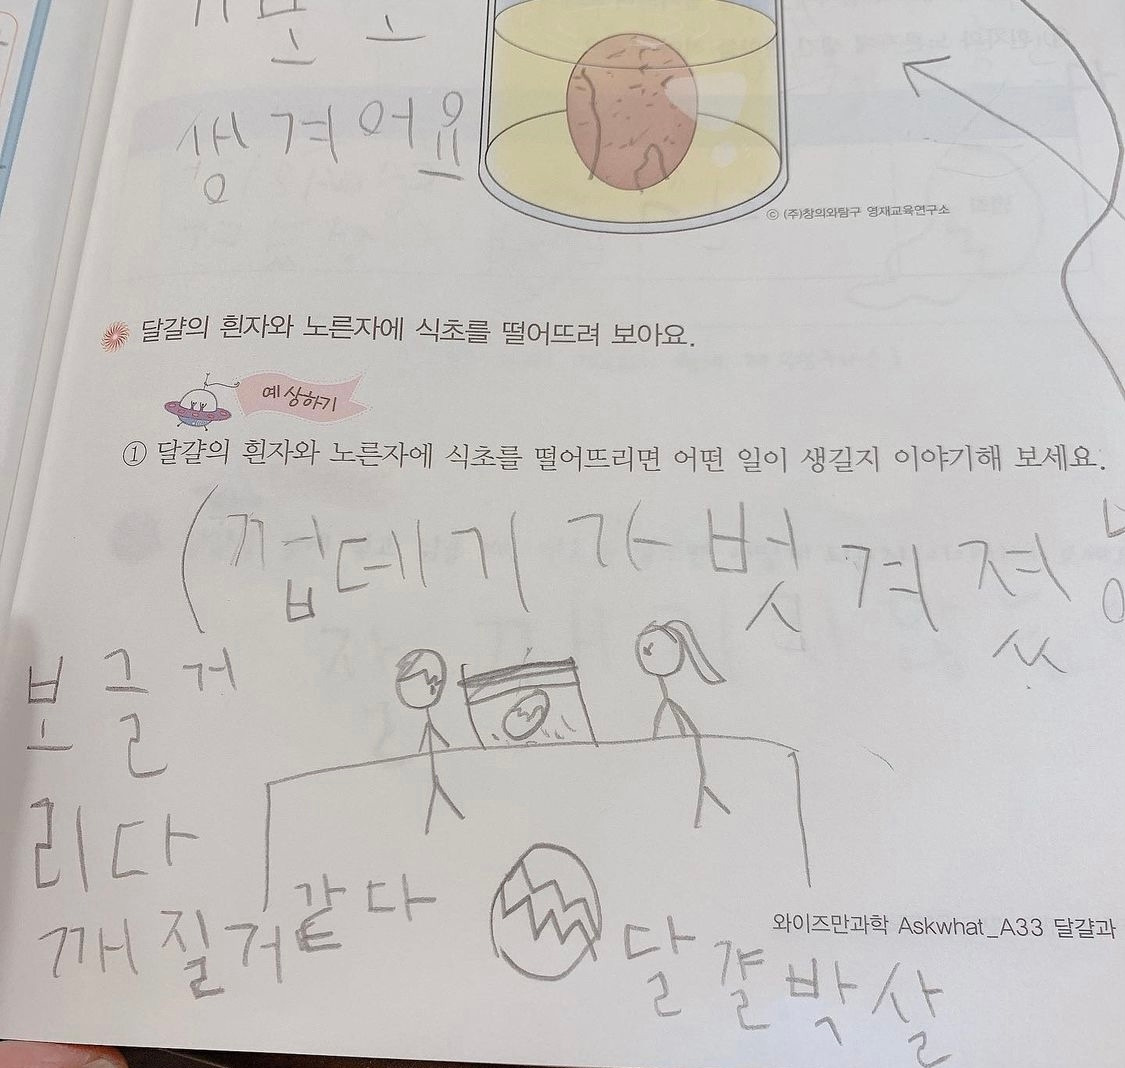 생겨어요
ⓒ (주)창의와탐구 영재교육연구소
달걀의 흰자와 노른자에 식초를 떨어뜨려 보아요.
예상하기
① 달걀의 흰자와 노른자에 식초를 떨어뜨리면 어떤 일이 생길지 이야기해 보세요.
(껍데기가 벗겨졌
보글거
리다
깨질거같다
달걀박살
와이즈만과학 Askwhat_A33 달걀과